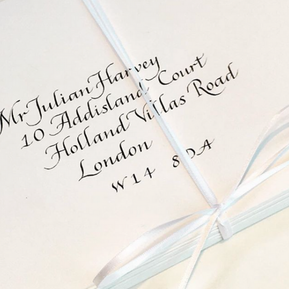 Mr Julian Harvey
10 Addisland Court
Holland Villas Road
London
W14 8DA